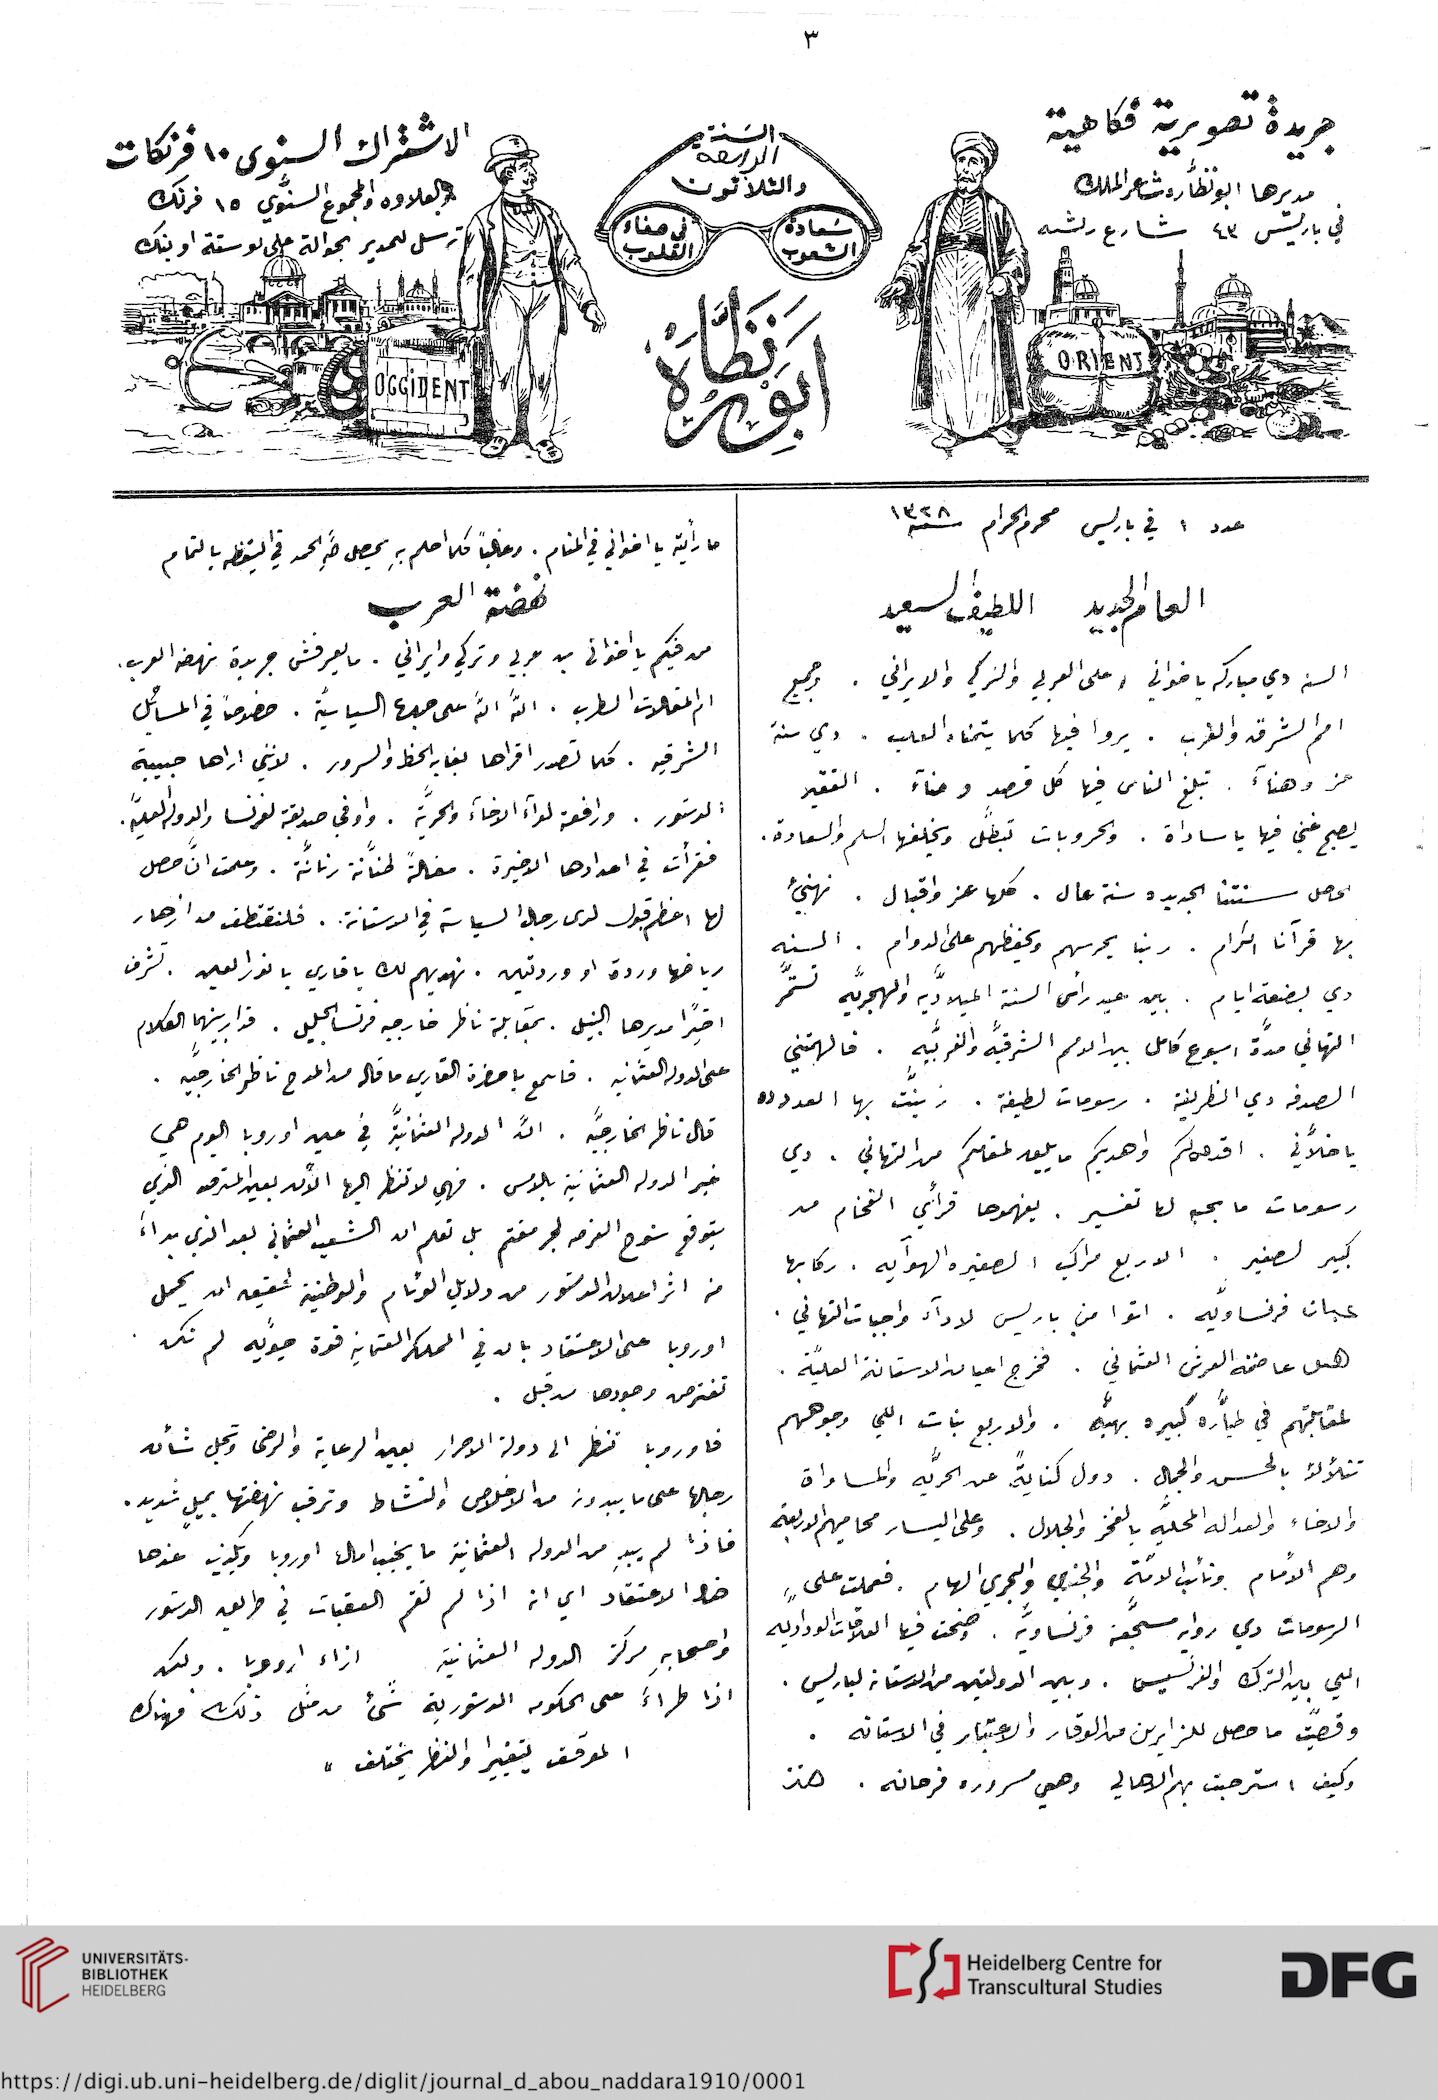 ٣
جريدة تصويرية فكاهية
مديرها ابو نظارة شاعر الملك
في باريس ٤٣ شارع رشه
السنة
الرابعة
والثلاثون
سعادة
الشعوب
في صفاء
القلوب
ابو نظارة
الاشتراك السنوى ١٠ فرنكات
بالعلاوه والمجموع السنوي ١٥ فرنك
ترسل للمدير بحوالة على بوستة او بنك
ORIENT
OCCIDENT
عدد ١ في باريس محرم الحرام سنة ١٣٢٨
العام الجديد اللطيف السعيد
السنه دي مباركه ياخواني، على العربي والتركي والايراني . وجميع
امم الشرق والغرب . يروا فيها كلما يتمناه القلب . دي سنة
عز وهنآء . تبلغ الناس فيها كل قصد ومناء . الفقير
يصبح غني فيها يا ساداة . والحروبات تبطل ويخلفها السلم والسعادة .
حاصل سنتنا الجديده سنة عال . كلها عز واقبال . نهنئ
بها قرآنا الكرام . ربنا يحرسهم ويحفظهم على الدوام . السنه
دي بضعة ايام . بين عيد رأس السنة الميلاديه والهجريه تستمر
التهاني مدة اسبوع كامل بين الامم الشرقيه والغربيه . فالهمتني
الصدفه دي الظريفة . رسومات لطيفة . زينت بها العدد ده
ياخلاني . اقدمه لكم واهديكم ما يليق لمقامكم من التهاني . دي
رسومات ما يجب لها تفسير . يفهموها قرائي الفخام من
كبير لصغير . الاربع مراكب الصغيره الهوآيه . ركابها
عيان فرنساويه . اتوا من باريس لادآء واجبات التهاني .
الى عاصمة العرش العثماني . فخرج اعيان الاستانة العليه .
لمقابلتهم في طياره كبيره بهيه . والاربع بنات اللي وجوههم
تتلألؤ بالحسن والجمال . دول كناية عن الحريه والمساواة
والاخاء والعداله المحليه بالفخر والجلال . وعلى اليسار محاميهم الاربعة
وهم الامام ونائب الامة والجندي والبحري الهام . فعملت على
الرسومات دي روايه مسجعة فرنساويه . وضحت فيها العلاقات الوداديه
اللي بين الترك والفرنسيس . وبين الدولتين من الاستانة لباريس .
وقصيت ما حصل للزايرين من الوقار والاعتبار في الاستانه .
وكيف استرحبت بهم الاهالي وهي مسروره فرحانه . هذا
ما رأيته يا اخواني في المنام . وغالباً كلما احلم به يحصل لله الحمد في اليقظه بالتمام
نهضة العرب
من فيكم يا اخواني من عربي وتركي وايراني . ما يعرفش جريدة نهضة العرب .
ام المقالات الطرب . الله الله على جملها السياسية . خصوصاً في المسائل
الشرقيه . كلما تصدر اقراها بغاية الحظ والسرور . لانني اراها حبيبة
الدستور . ورافعة لواء الاخآء والحرية . واوفى صديقة لفرنسا والدوله العلية .
فقرأت في اعدادها الاخيرة . مقالة طنانة رنانة . وعلمت ان حصل
لها اعظم قبول لدى رجال السياسة في الاستانة . فلنقتطف من ازهار
رياضها وردة او وردتين . نهديهم لك يا قاري يا نور العين . تشرف
اخيراً مديرها النبيل . بمقابلة ناظر خارجيه فرنسا الجليل . فدار بينهما الكلام
على الدوله العثمانيه . فاسمع يا حضرة القاري ما قال من المدح ناظر الخارجيه .
قال ناظر الخارجيه . ان الدوله العثمانية في عين اوروبا اليوم هي
غير الدوله العثمانية بالامس . فهي لا تنظر اليها الآن بعين المترقب الذي
يتوقع سنوح الفرصه لجر مغنم بل تعلم ان الشعب العثماني بعد الذي بداء
منه اثر اعلان الدستور من دلايل الوئام والوطنية الحقيقيه ان يحمل
اوروبا على الاعتقاد بان في المملكه العثمانيه قوة حيويه لم تكن
تفترض وجودها من قبل .
فاوروبا تنظر الى دولة الاحرار بعين الرعاية والرضى وتجل شأن
رجالها على ما يبدونه من الاخلاص والنشاط وترقب نهضتها بميل شديد .
فاذا لم يبد من الدوله العثمانية ما يخيب امال اوروبا ويكذب عندها
هذا الاعتقاد اي انه اذا لم تقم العقبات في طريق الدستور
واصحابه مركز الدوله العثمانية ازاء اروبا . ولكن
اذا طراء على الحكومه الدستورية شئ من مثل ذلك فهناك
الموقف يتغير والنظر يختلف "
UNIVERSITÄTS-
BIBLIOTHEK
HEIDELBERG
Heidelberg Centre for
Transcultural Studies
DFG
https://digi.ub.uni-heidelberg.de/diglit/journal_d_abou_naddara1910/0001